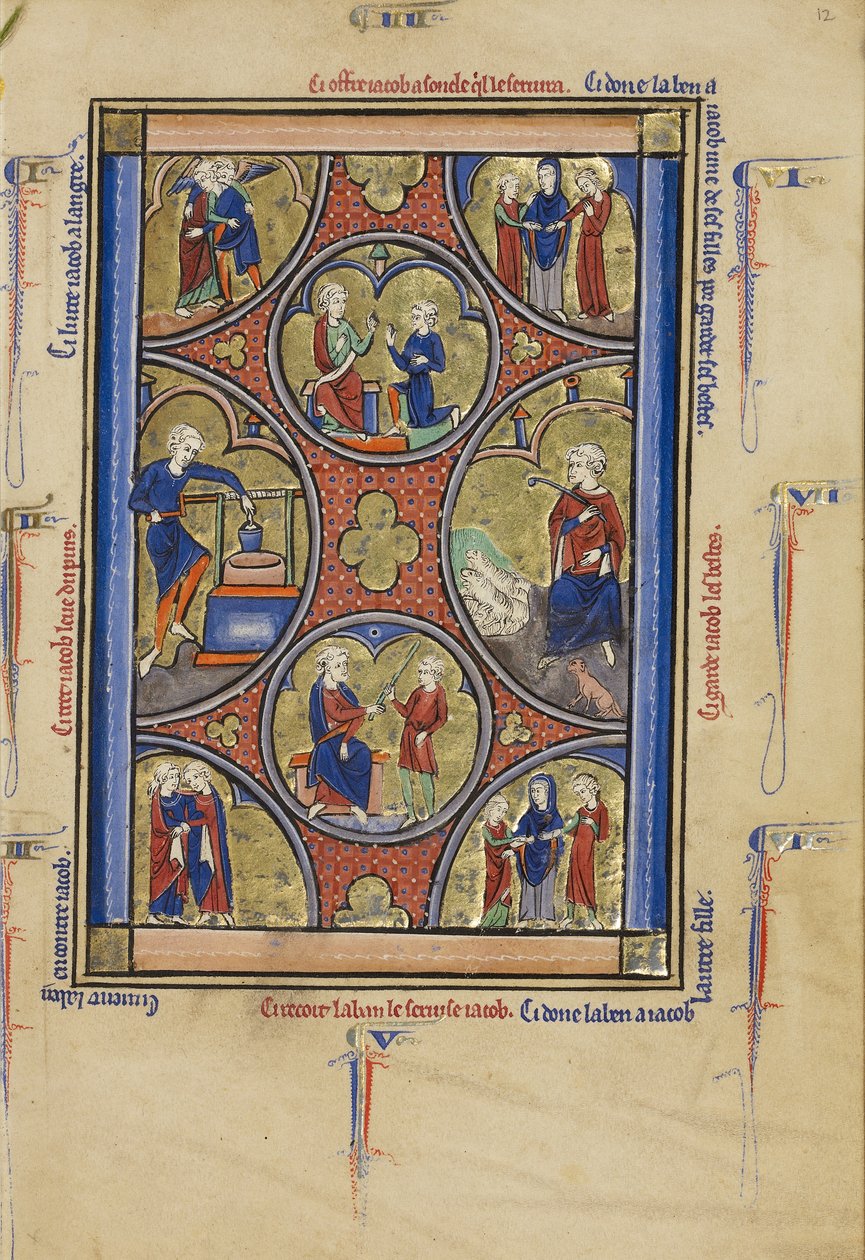 12
III
Ci offre iacob a soncle q̓l le seruira. Ci done laben a
iacob une de ses filles por garder ses bestes.
I
Ci luite iacob a langre.
VI
II
Ci tret iacob leue du puis.
VII
Ci garde iacob les bestes.
III
Ci uient laben
encontre iacob.
Ci recoit laban le seruise iacob. Ci done laben a iacob
lautre fille.
V